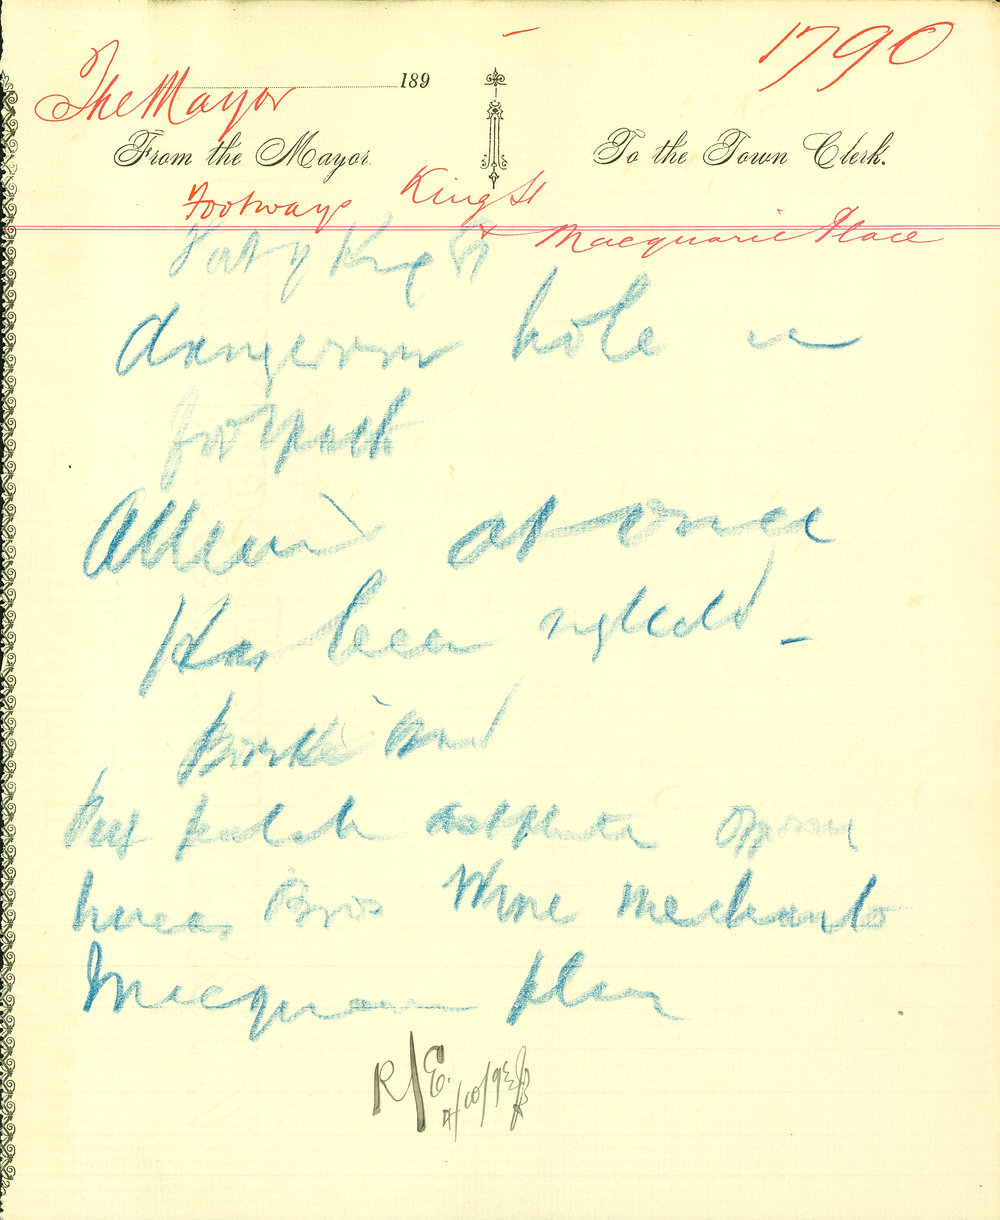 1790
The Mayor
189
From the Mayor.
To the Town Clerk.
Footways King St
& Macquarie Place
King St
dangerous hole in
footpath
Attend at once
Has been neglected -
Bourke
asphalte opposite
Bros Wine Merchants
Macquarie place
R/E.